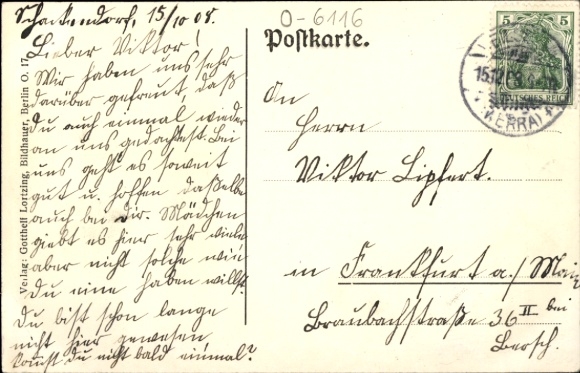 Schackendorf, 15/10 08.
O-6116
Lieber Viktor!
Wir haben uns sehr
darüber gefreut, daß
du auch einmal wieder
an uns gedachtest. Bei
uns geht es soweit
gut u. hoffen dasselbe
auch bei dir. Mädchen
giebt es hier sehr viele
aber nicht solche wie
du eine haben willst.
Du bist schon lange
nicht hier gewesen
kommst du nicht bald einmal?
Verlag: Gotthelf Lortzing, Bildhauer, Berlin O. 17.
Postkarte.
5 5
DEUTSCHES REICH
(WERRA)
An
Herrn
Viktor Lipfert.
in Frankfurt a./Main
Braubachstraße 36 II bei
Bersch.